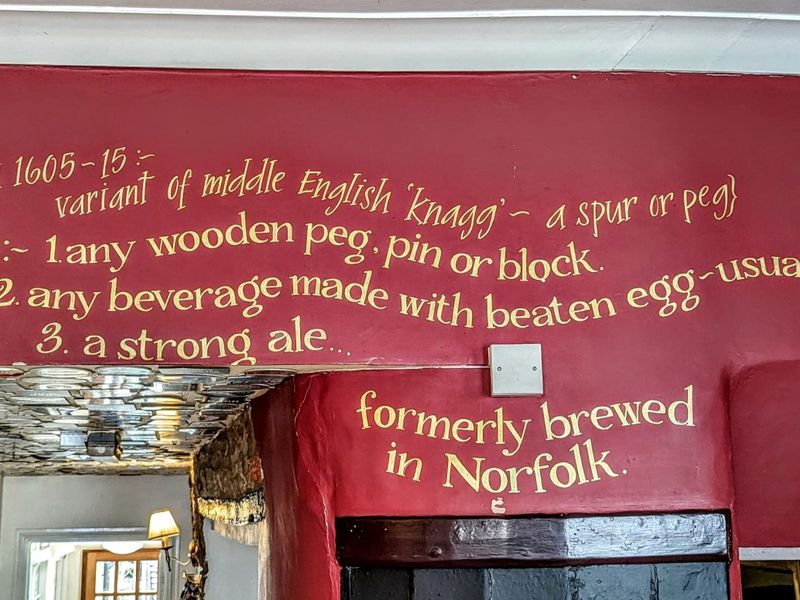 1605~15:~
variant of middle English 'knagg'~ a spur or peg}
:~ 1. any wooden peg, pin or block.
2. any beverage made with beaten egg~usua
3. a strong ale...
formerly brewed
in Norfolk.